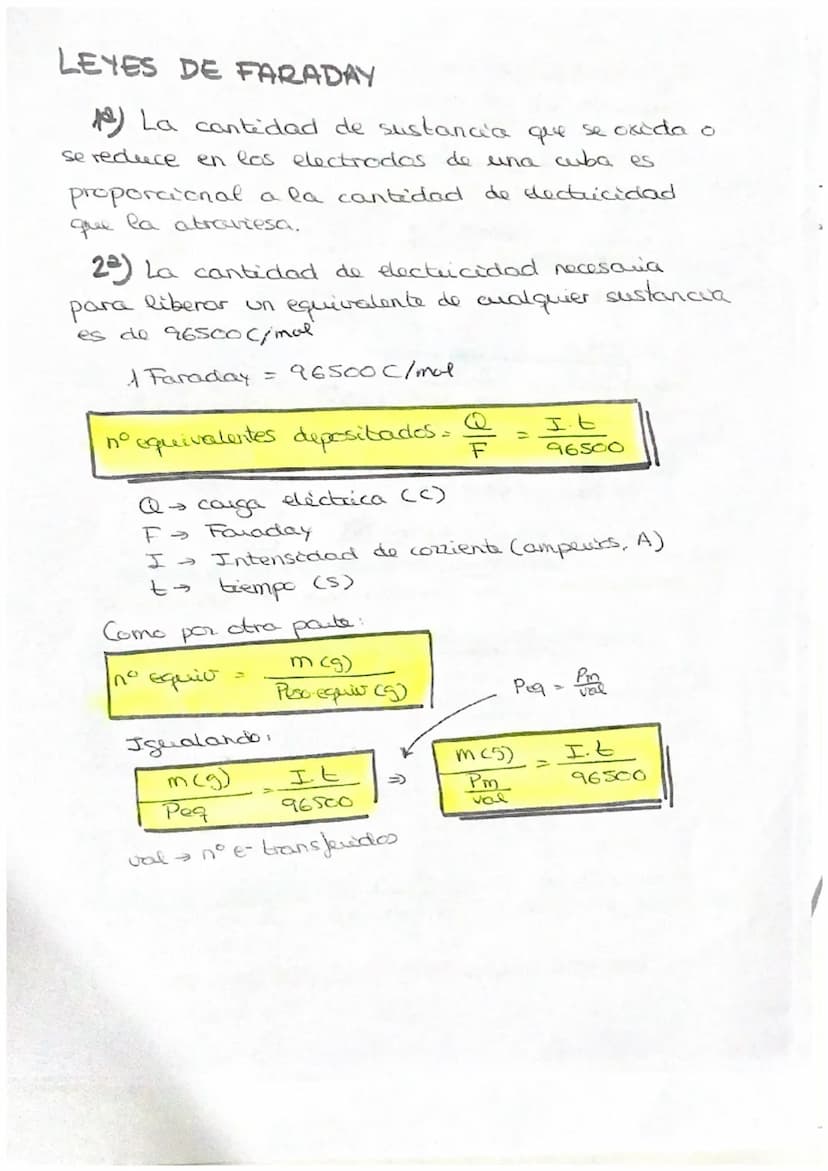 LEYES DE FARADAY
1ª) La cantidad de sustancia que se oxida o
se reduce en los electrodos de una cuba es
proporcional a la cantidad de electricidad
que la atraviesa.
2ª) La cantidad de electricidad necesaria
para liberar un equivalente de cualquier sustancia
es de 96500 C/mol
1 Faraday = 96500 C/mol
nº equivalentes depositados = Q/F = I·t/96500
Q → carga eléctrica (C)
F → Faraday
I → Intensidad de corriente (amperios, A)
t → tiempo (s)
Como por otra parte:
nº equiv = m(g)/Peso equiv (g)
Peq = Pm/val
Igualando:
m(g)/Peq = I·t/96500 ⇒ m(g)/(Pm/val) = I·t/96500
val → nº e- transferidos